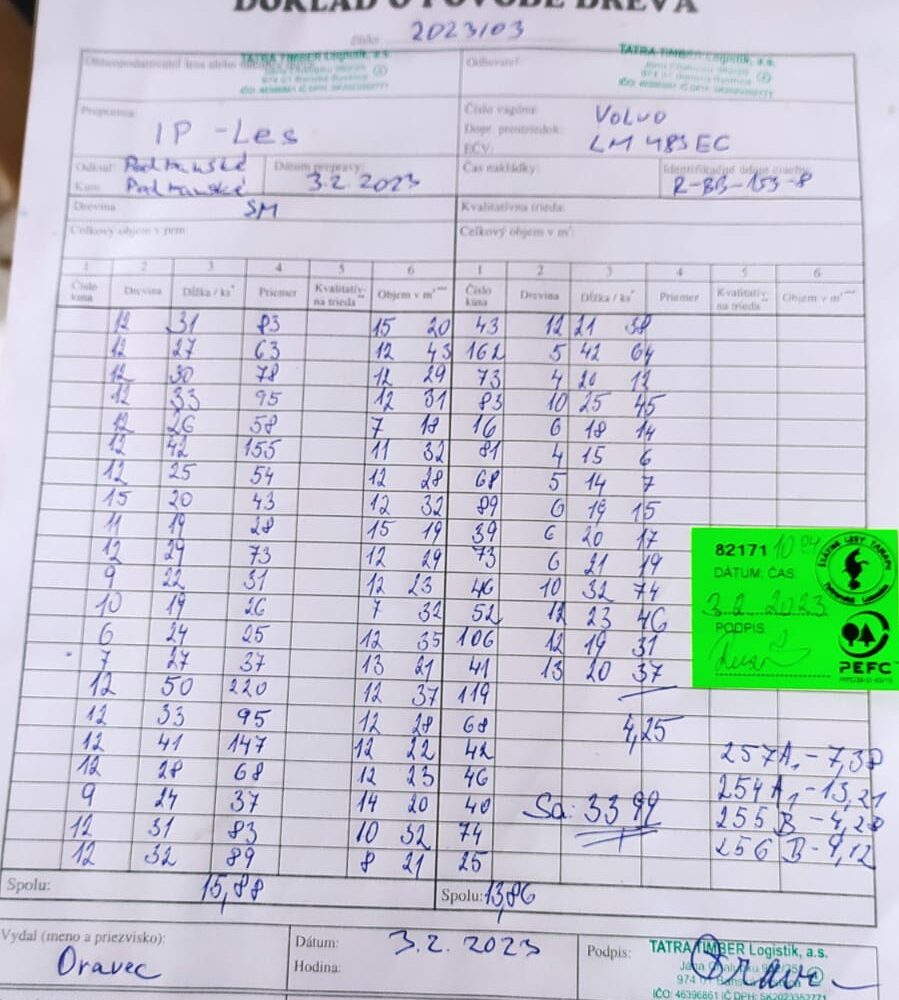 DOKLAD O PÔVODE DREVA
číslo 2023/03
TATRA TIMBER Logistik, a.s.
TATRA TIMBER Logistik, a.s.
Odberateľ:
Prepravca: IP - Les
Číslo vagóna: Volvo
Dopr. prostriedok:
EČV: LM 483 EC
Odkiaľ: Podtanské
Kam: Podtanské
Dátum prepravy: 3.2.2023
Čas nakládky:
R-BB-153-8
Drevina: SM
Kvalitatívna trieda:
Celkový objem v prm:
Celkový objem v m³:
1 2 3 4 5 6 1 2 3 4 5 6
Číslo kusa Drevina Dĺžka / ks* Priemer Kvalitatív- na trieda** Objem v m³*** Číslo kusa Drevina Dĺžka / ks* Priemer Kvalitatív- na trieda** Objem v m³***
12 31 83 15 20 43 12 21 38
12 27 63 12 43 162 5 42 64
12 30 78 12 29 73 4 20 12
12 33 95 12 31 83 10 25 45
12 26 58 7 18 16 6 18 14
12 42 155 11 32 81 4 15 6
12 25 54 12 28 68 5 14 7
15 20 43 12 32 89 6 19 15
11 19 28 15 19 39 6 20 17
12 29 73 12 29 73 6 21 19
9 22 31 12 23 46 10 32 74
10 19 26 7 32 52 12 23 46
6 24 25 12 35 106 12 19 31
7 27 37 13 21 41 13 20 37
12 50 220 12 37 119
12 33 95 12 28 68 4,25
12 41 147 12 22 42 257A - 7,38
12 28 68 12 23 46 254A - 13,21
9 24 37 14 20 40 Sa: 33 99 255 B - 4,28
12 31 83 10 32 74 256 B - 9,12
12 32 89 8 21 25
Spolu: 15,88 Spolu: 13,86
82171
DÁTUM, ČAS:
3.2.2023
PODPIS:
PEFC
Vydal (meno a priezvisko):
Oravec
Dátum: 3.2.2023
Hodina:
Podpis:
TATRA TIMBER Logistik, a.s.
IČO: 46396861 IČ DPH: SK2023352771